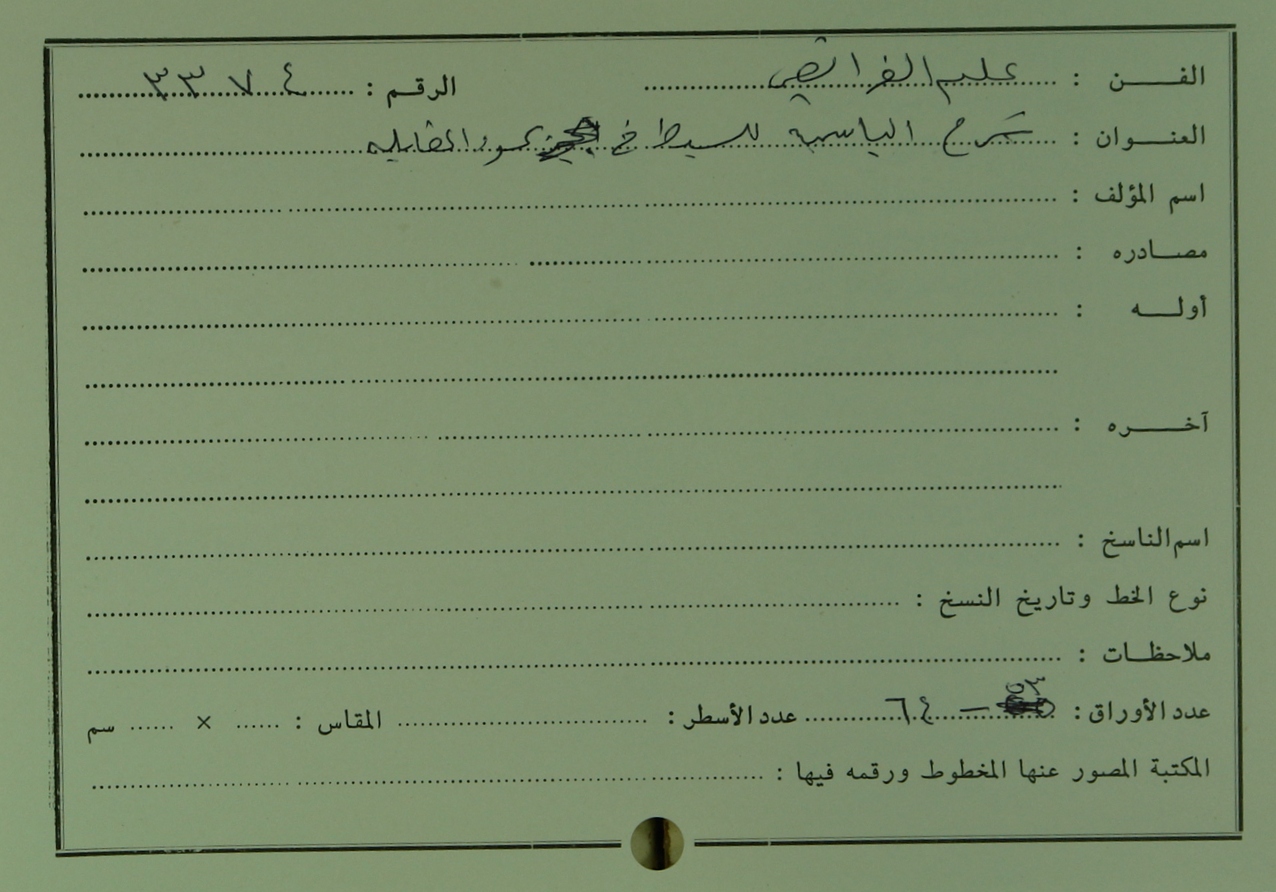 الفن : علم الفرائض الرقم : ٣٣٧٤
العنوان : شرح الياسمية للسبط في الجبر والمقابلة
اسم المؤلف :
مصادره :
أوله :
آخره :
اسم الناسخ :
نوع الخط وتاريخ النسخ :
ملاحظات :
عدد الأوراق : ٥٣ - ٦٤ عدد الأسطر : المقاس : × سم
المكتبة المصور عنها المخطوط ورقمه فيها :